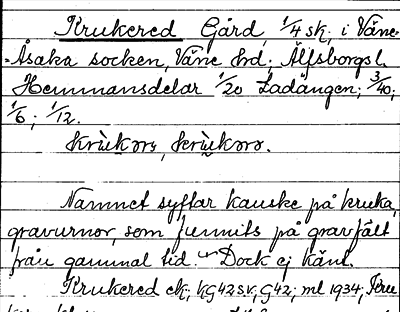 Krukered Gård, 1/4 sk, i Väne-
-Åsaka socken, Väne hd; Älfsborgs l.
Hemmansdelar 1/20 Ladängen; 3/40;
1/6; 1/12.
Namnet syftar kanske på kruka,
gravurnor, som funnits på gravfält
från gammal tid. Dock ej känt.
Krukered ek; kg42sv; G42; ml 1934, Kru